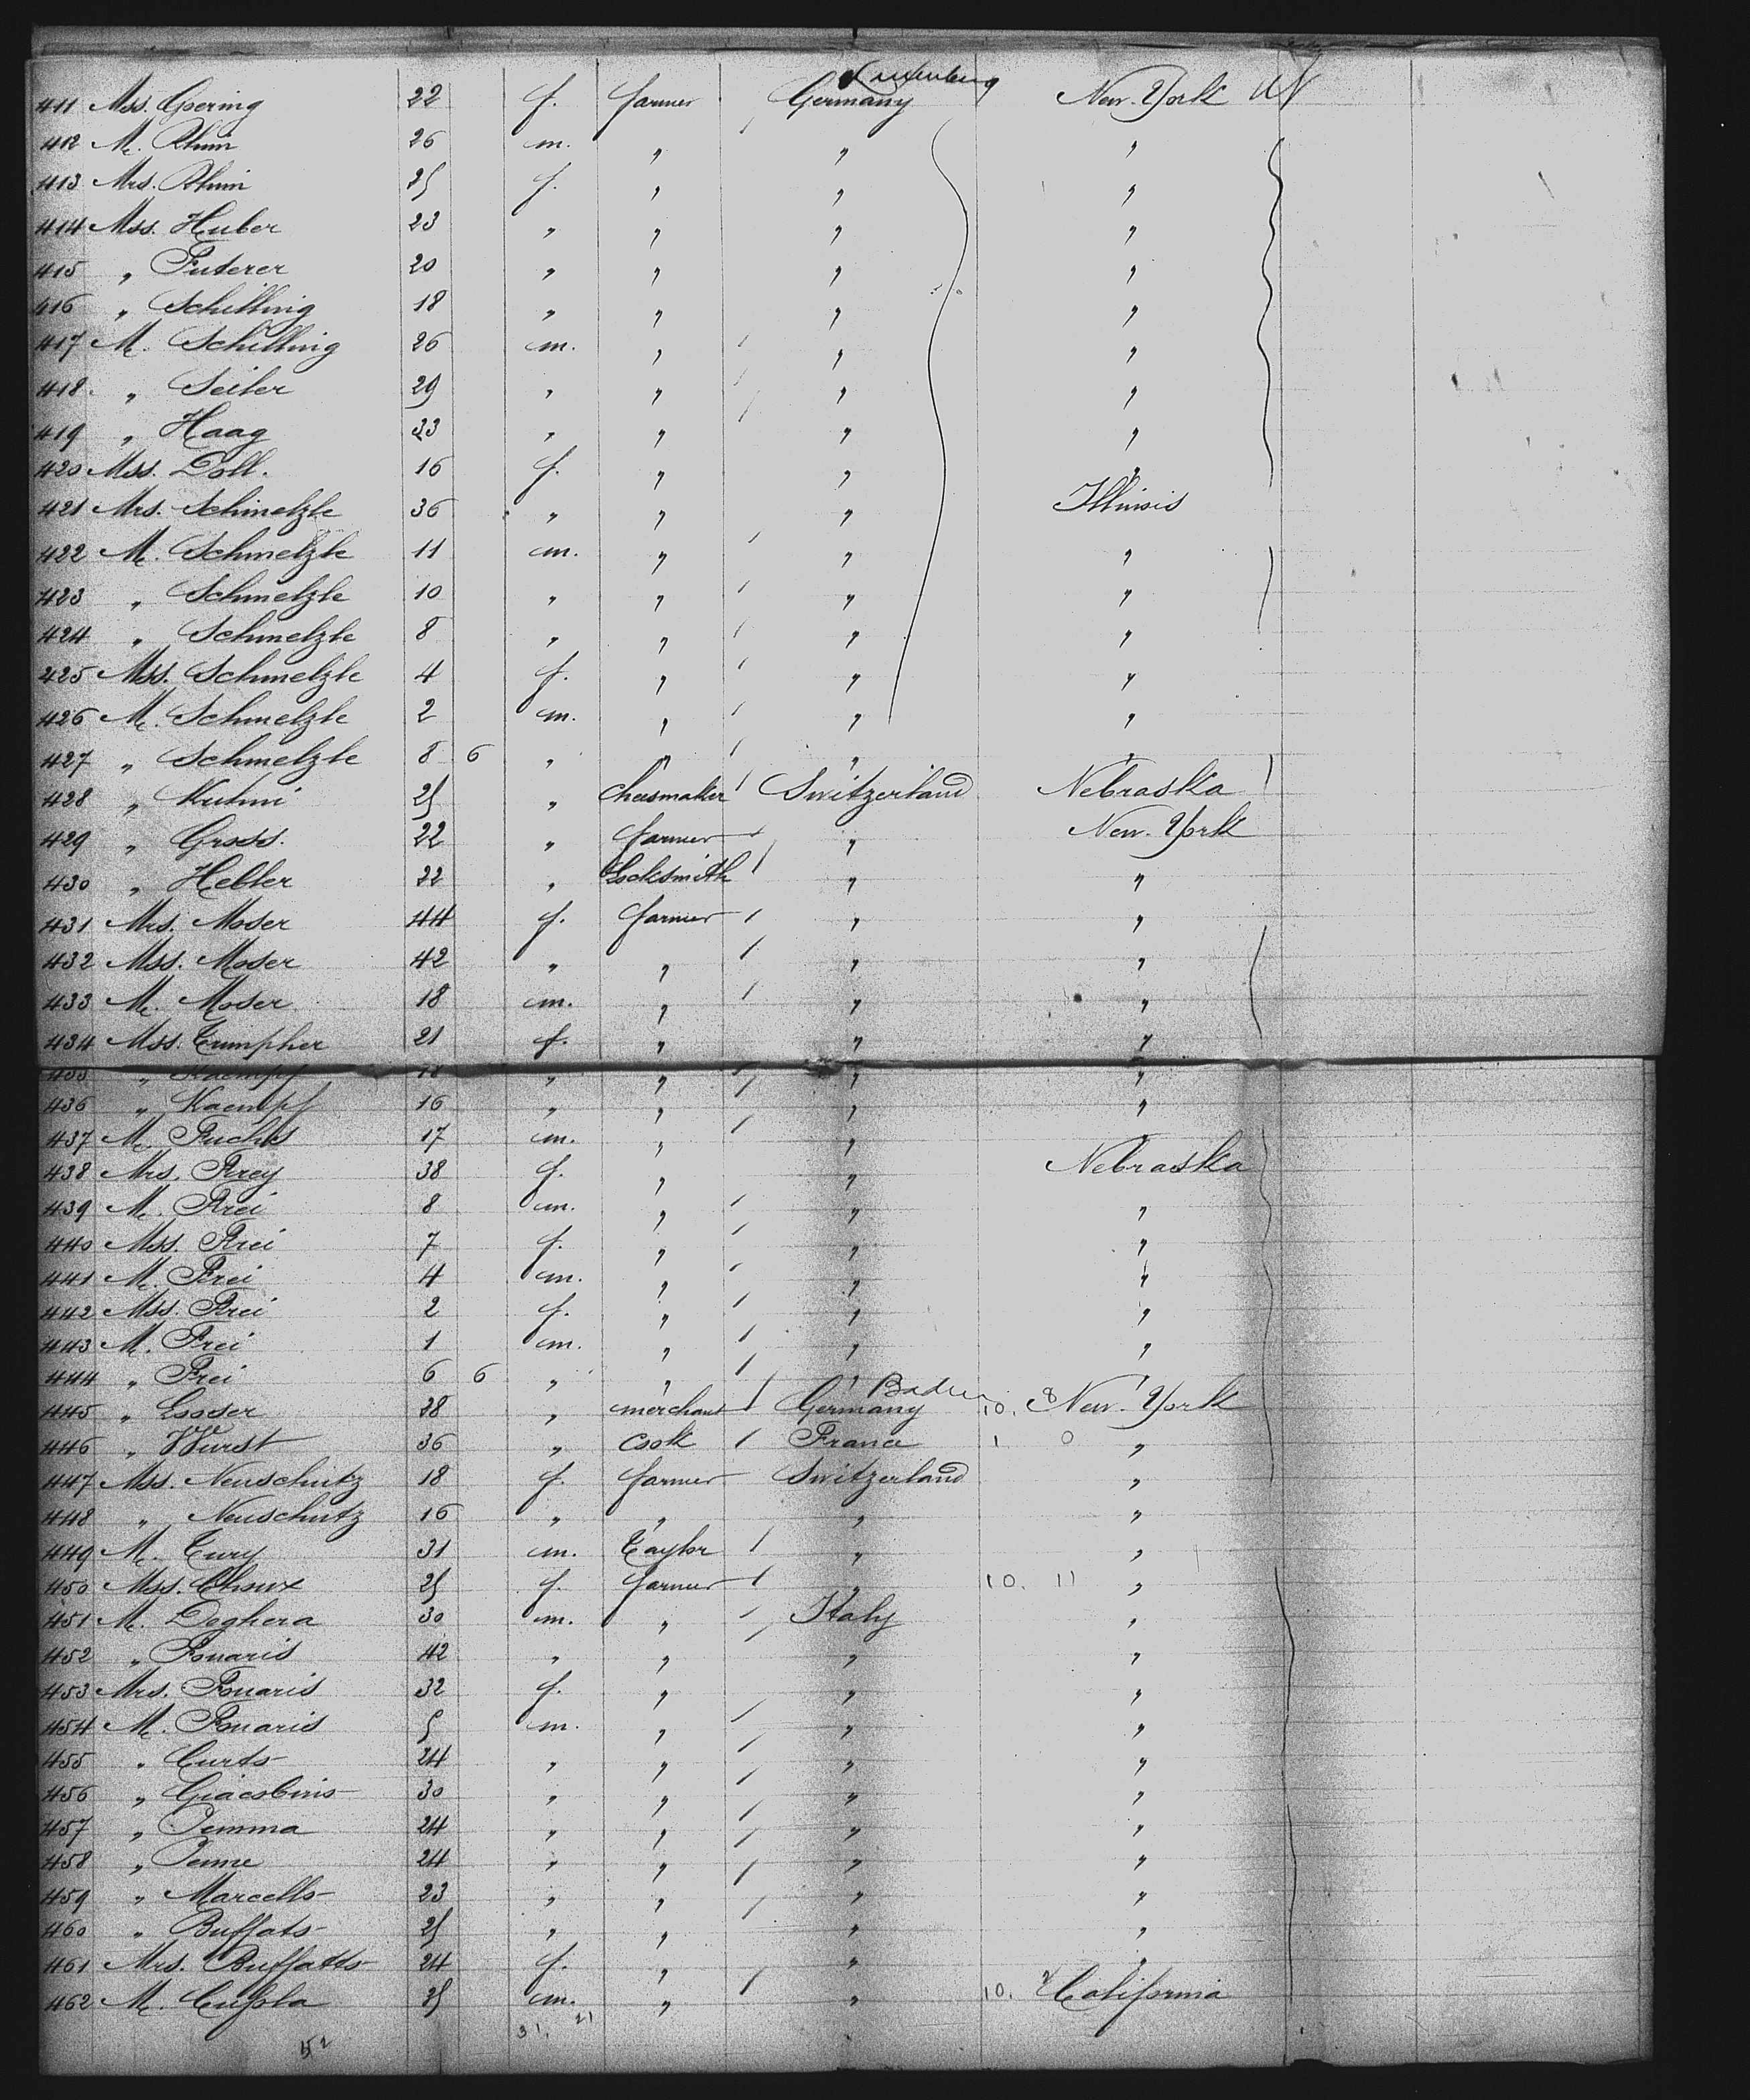 411 Mss. Goering 22 f. farmer Germany New-York
412 M. Rhim 26 m. " " "
413 Mrs. Rhim 25 f. " " "
414 Mss. Huber 23 " " " "
415 " Futerer 20 " " " "
416 " Schilling 18 " " " "
417 M. Schilling 26 m. " " "
418 " Seiler 29 " " " "
419 " Haag 33 " " " "
420 Mss. Doll. 16 f. " " "
421 Mrs. Schmelzle 36 " " " Illinois
422 M. Schmelzle 11 m. " " "
423 " Schmelzle 10 " " " "
424 " Schmelzle 8 " " " "
425 Mss. Schmelzle 4 f. " " "
426 M. Schmelzle 2 m. " " "
427 " Schmelzle 8 6 " " " "
428 " Kuhni 25 " Cheesmaker Switzerland Nebraska
429 " Gross. 22 " farmer " New-York
430 " Hebler 22 " Locksmith " "
431 Mrs. Moser 44 f. farmer " "
432 Mss. Moser 42 " " " "
433 M. Moser 18 m. " " "
434 Mss. Trimpher 21 f. " " "
435 " Kaempf 18 " " " "
436 " Kaempf 16 " " " "
437 M. Fuchs 17 m. " "
438 Mrs. Frey 38 f. " " Nebraska
439 M. Frei 8 m. " " "
440 Mss. Frei 7 f. " " "
441 M. Frei 4 m. " " "
442 Mss. Frei 2 f. " " "
443 M. Frei 1 m. " " "
444 " Frei 6 6 " " " "
Baden
445 " Looser 28 " merchant Germany 10. 8 New-York
446 " Wurst 36 " Cook France 1 0 "
447 Mss. Neuschutz 18 f. farmer Switzerland "
448 " Neuschutz 16 " " " "
449 M. Cury 31 m. Taylor " "
450 Mss. Choux 25 f. farmer " 10. 11 "
451 M. Deghera 30 m. " Italy "
452 " Fonaris 42 " " " "
453 Mrs. Fonaris 32 f. " " "
454 M. Fonaris 5 m. " " "
455 " Curto 24 " " " "
456 " Giacobino 30 " " " "
457 " Pemma 24 " " " "
458 " Penne 24 " " " "
459 " Marcello 23 " " " "
460 " Buffato 25 " " " "
461 Mrs. Buffatto 24 f. " " "
462 M. Cupola 25 m. " " 10. 2 California
31. 21
52